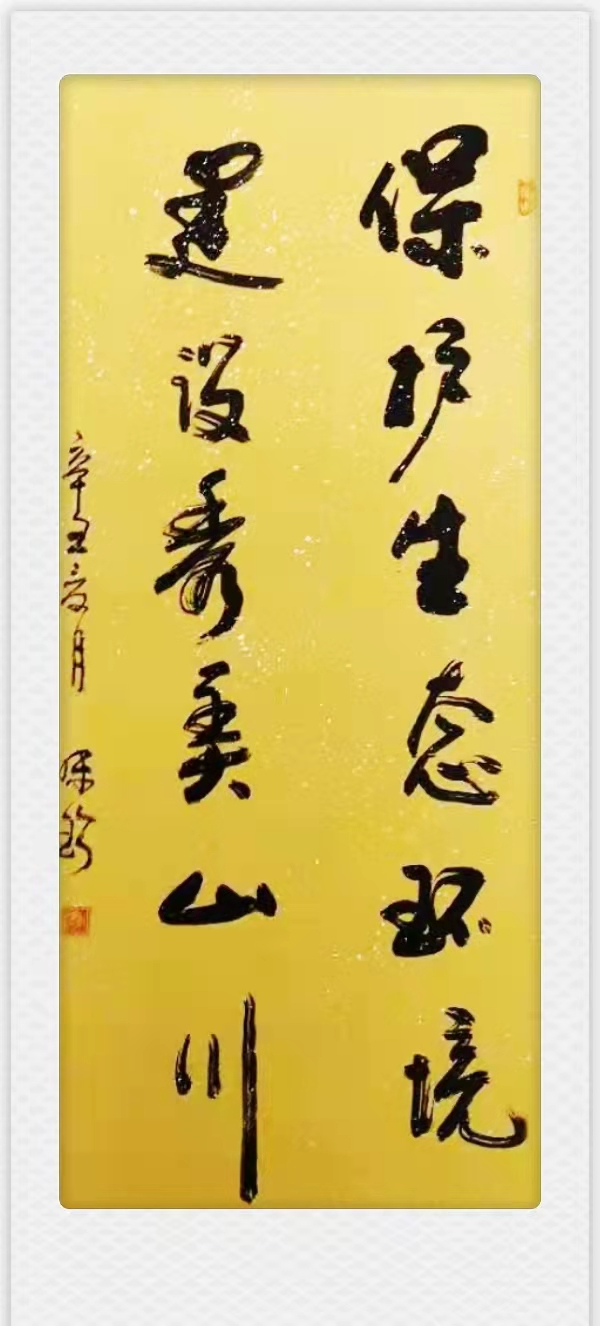 保护生态环境
建设秀美山川
辛丑夏月